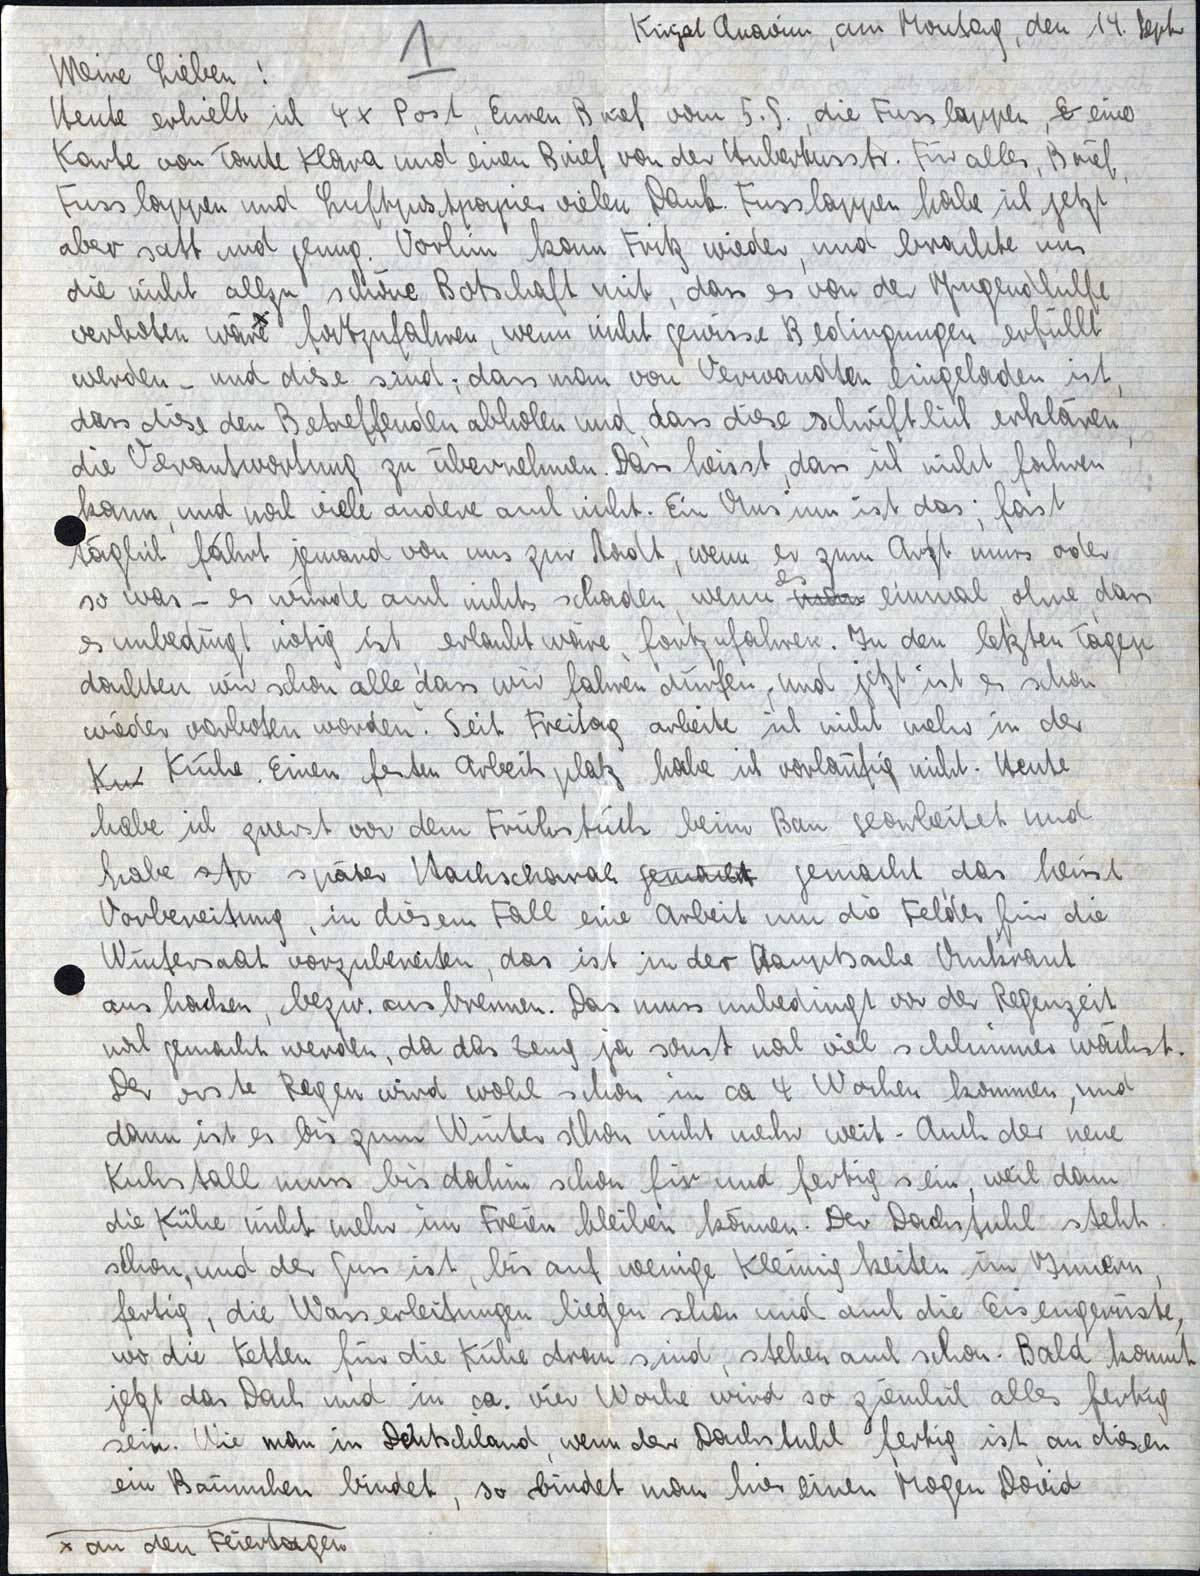 Kirjat Anavim, am Montag, den 14. Sept.
1
Meine Lieben!
Heute erhielt ich 4x Post, Euren Brief vom 5.9., die Fusslappen, & eine
Karte von Tante Klara und einen Brief von der Hubertusstr. Für alles, Brief,
Fusslappen und Luftpostpapier vielen Dank. Fusslappen habe ich jetzt
aber satt und genug. Vorhin kam Fritz wieder, und brachte uns
die nicht allzu schöne Botschaft mit, dass es von der Jugendhilfe
verboten wäre x fortzufahren, wenn nicht gewisse Bedingungen erfüllt
werden – und diese sind: dass man von Verwandten eingeladen ist,
dass diese den Betreffenden abholen und dass diese schriftlich erklären,
die Verantwortung zu übernehmen. Das heisst, dass ich nicht fahren
kann, und noch viele andere auch nicht. Ein Unsinn ist das; fast
täglich fährt jemand von uns zur Stadt, wenn er zum Arzt muss oder
so was – es würde auch nichts schaden, wenn es einmal, ohne dass
es unbedingt nötig ist erlaubt wäre, fortzufahren. In den letzten Tagen
dachten wir schon alle dass wir fahren dürfen, und jetzt ist es schon
wieder verboten worden. Seit Freitag arbeite ich nicht mehr in der
Kü Küche. Einen festen Arbeitsplatz habe ich vorläufig nicht. Heute
habe ich zuerst vor dem Frühstück beim Bau gearbeitet und
habe später Hachscharah gemacht gemacht das heisst
Vorbereitung, in diesem Fall eine Arbeit um die Felder für die
Wintersaat vorzubereiten, das ist in der Hauptsache Unkraut
aushacken, bezw. ausbrennen. Das muss unbedingt vor der Regenzeit
noch gemacht werden, da das Zeug ja sonst noch viel schlimmer wächst.
Der erste Regen wird wohl schon in ca 4 Wochen kommen, und
dann ist es bis zum Winter schon nicht mehr weit – Auch der neue
Kuhstall muss bis dahin schon fix und fertig sein, weil dann
die Kühe nicht mehr im Freien bleiben können. Der Dachstuhl steht
schon, und der Guss ist, bis auf wenige Kleinigkeiten im Innern,
fertig, die Wasserleitungen liegen schon und auch die Eisengerüste,
wo die Ketten für die Kühe dran sind, stehen auch schon. Bald kommt
jetzt das Dach und in ca. vier Woche wird so ziemlich alles fertig
sein. Wie man in Deutschland, wenn der Dachstuhl fertig ist, an diesen
ein Bäumchen bindet, so bindet man hier einen Mogen David
x an den Feiertagen